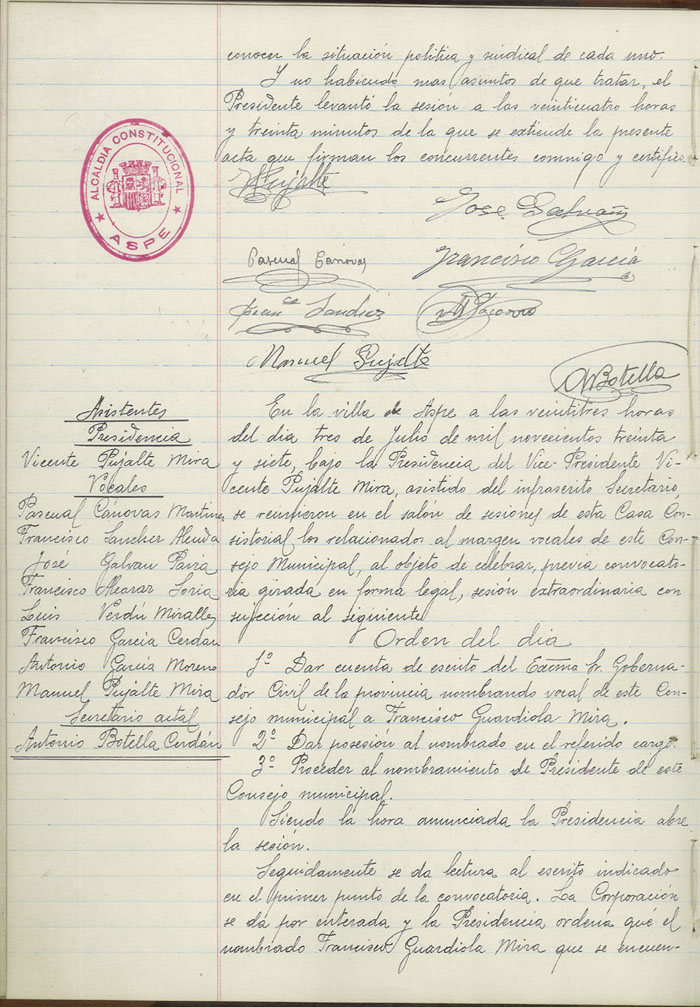 conocer la situación politica y sindical de cada uno.
Y no habiendo mas asuntos de que tratar, el
Presidente levantó la sesión a las veinticuatro horas
y treinta minutos de la que se extiende la presente
acta que firman los concurrentes conmigo y certifico
ALCALDIA CONSTITUCIONAL
ASPE
Pujalte
Jose Galvañ
Pascual Canovas
Francisco Garcia
Sanchez
Manuel Pujalte
ABotella
Asistentes
Presidencia
Vicente Pujalte Mira
Vocales
Pascual Canovas Martinez
Francisco Sanchez Alenda
José Galvan Pavia
Francisco Alcaraz Soria
Luis Verdú Miralles
Francisco Garcia Cerdan
Antonio Garcia Moreno
Manuel Pujalte Mira
Secretario actal
Antonio Botella Cerdán
En la villa de Aspe a las veintitres horas
del dia tres de Julio de mil novecientos treinta
y siete, bajo la Presidencia del Vice-Presidente Vi-
cente Pujalte Mira, asistido del infrascrito Secretario,
se reunieron en el salon de sesiones de esta Casa Con-
sistorial los relacionados al margen vocales de este Con-
sejo Municipal, al objeto de celebrar, previa convocato-
ria girada en forma legal, sesión extraordinaria con
sujección al siguiente
Orden del dia
1º Dar cuenta de escrito del Excmo Sr. Goberna-
dor Civil de la provincia nombrando vocal de este Con-
sejo municipal a Francisco Guardiola Mira.
2º Dar posesión al nombrado en el referido cargo.
3º Proceder al nombramiento de Presidente de este
Consejo municipal.
Siendo la hora anunciada la Presidencia abre
la sesión.
Seguidamente se da lectura al escrito indicado
en el primer punto de la convocatoria. La Corporación
se da por enterada y la Presidencia ordena que el
nombrado Francisco Guardiola Mira que se encuen-